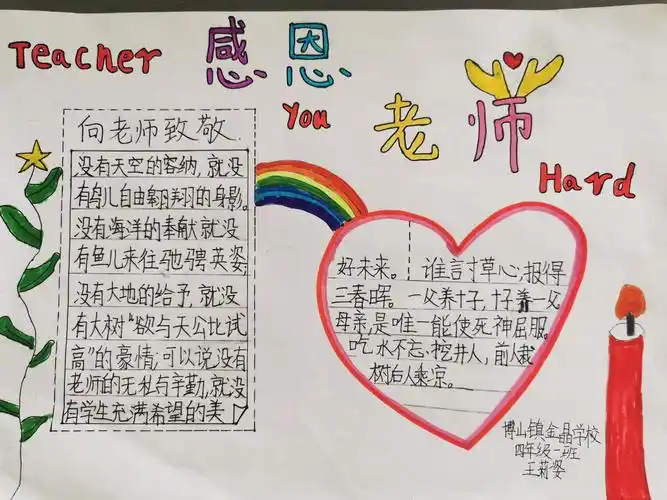 Teacher 感恩
You 老师
Hard
向老师致敬.
没有天空的容纳,就没
有鸟儿自由翱翔的身影。
没有海洋的奉献就没
有鱼儿来往驰骋英姿
没有大地的给予,就没
有大树“欲与天公比试
高”的豪情,可以说没有
老师的无私与辛勤,就没
有学生充满希望的美
好未来。 谁言寸草心,报得
三春晖。一父养十子,十子养一父
母亲,是唯一能使死神屈服。
吃水不忘挖井人,前人栽
树后人乘凉。
博山镇金晶学校
四年级一班